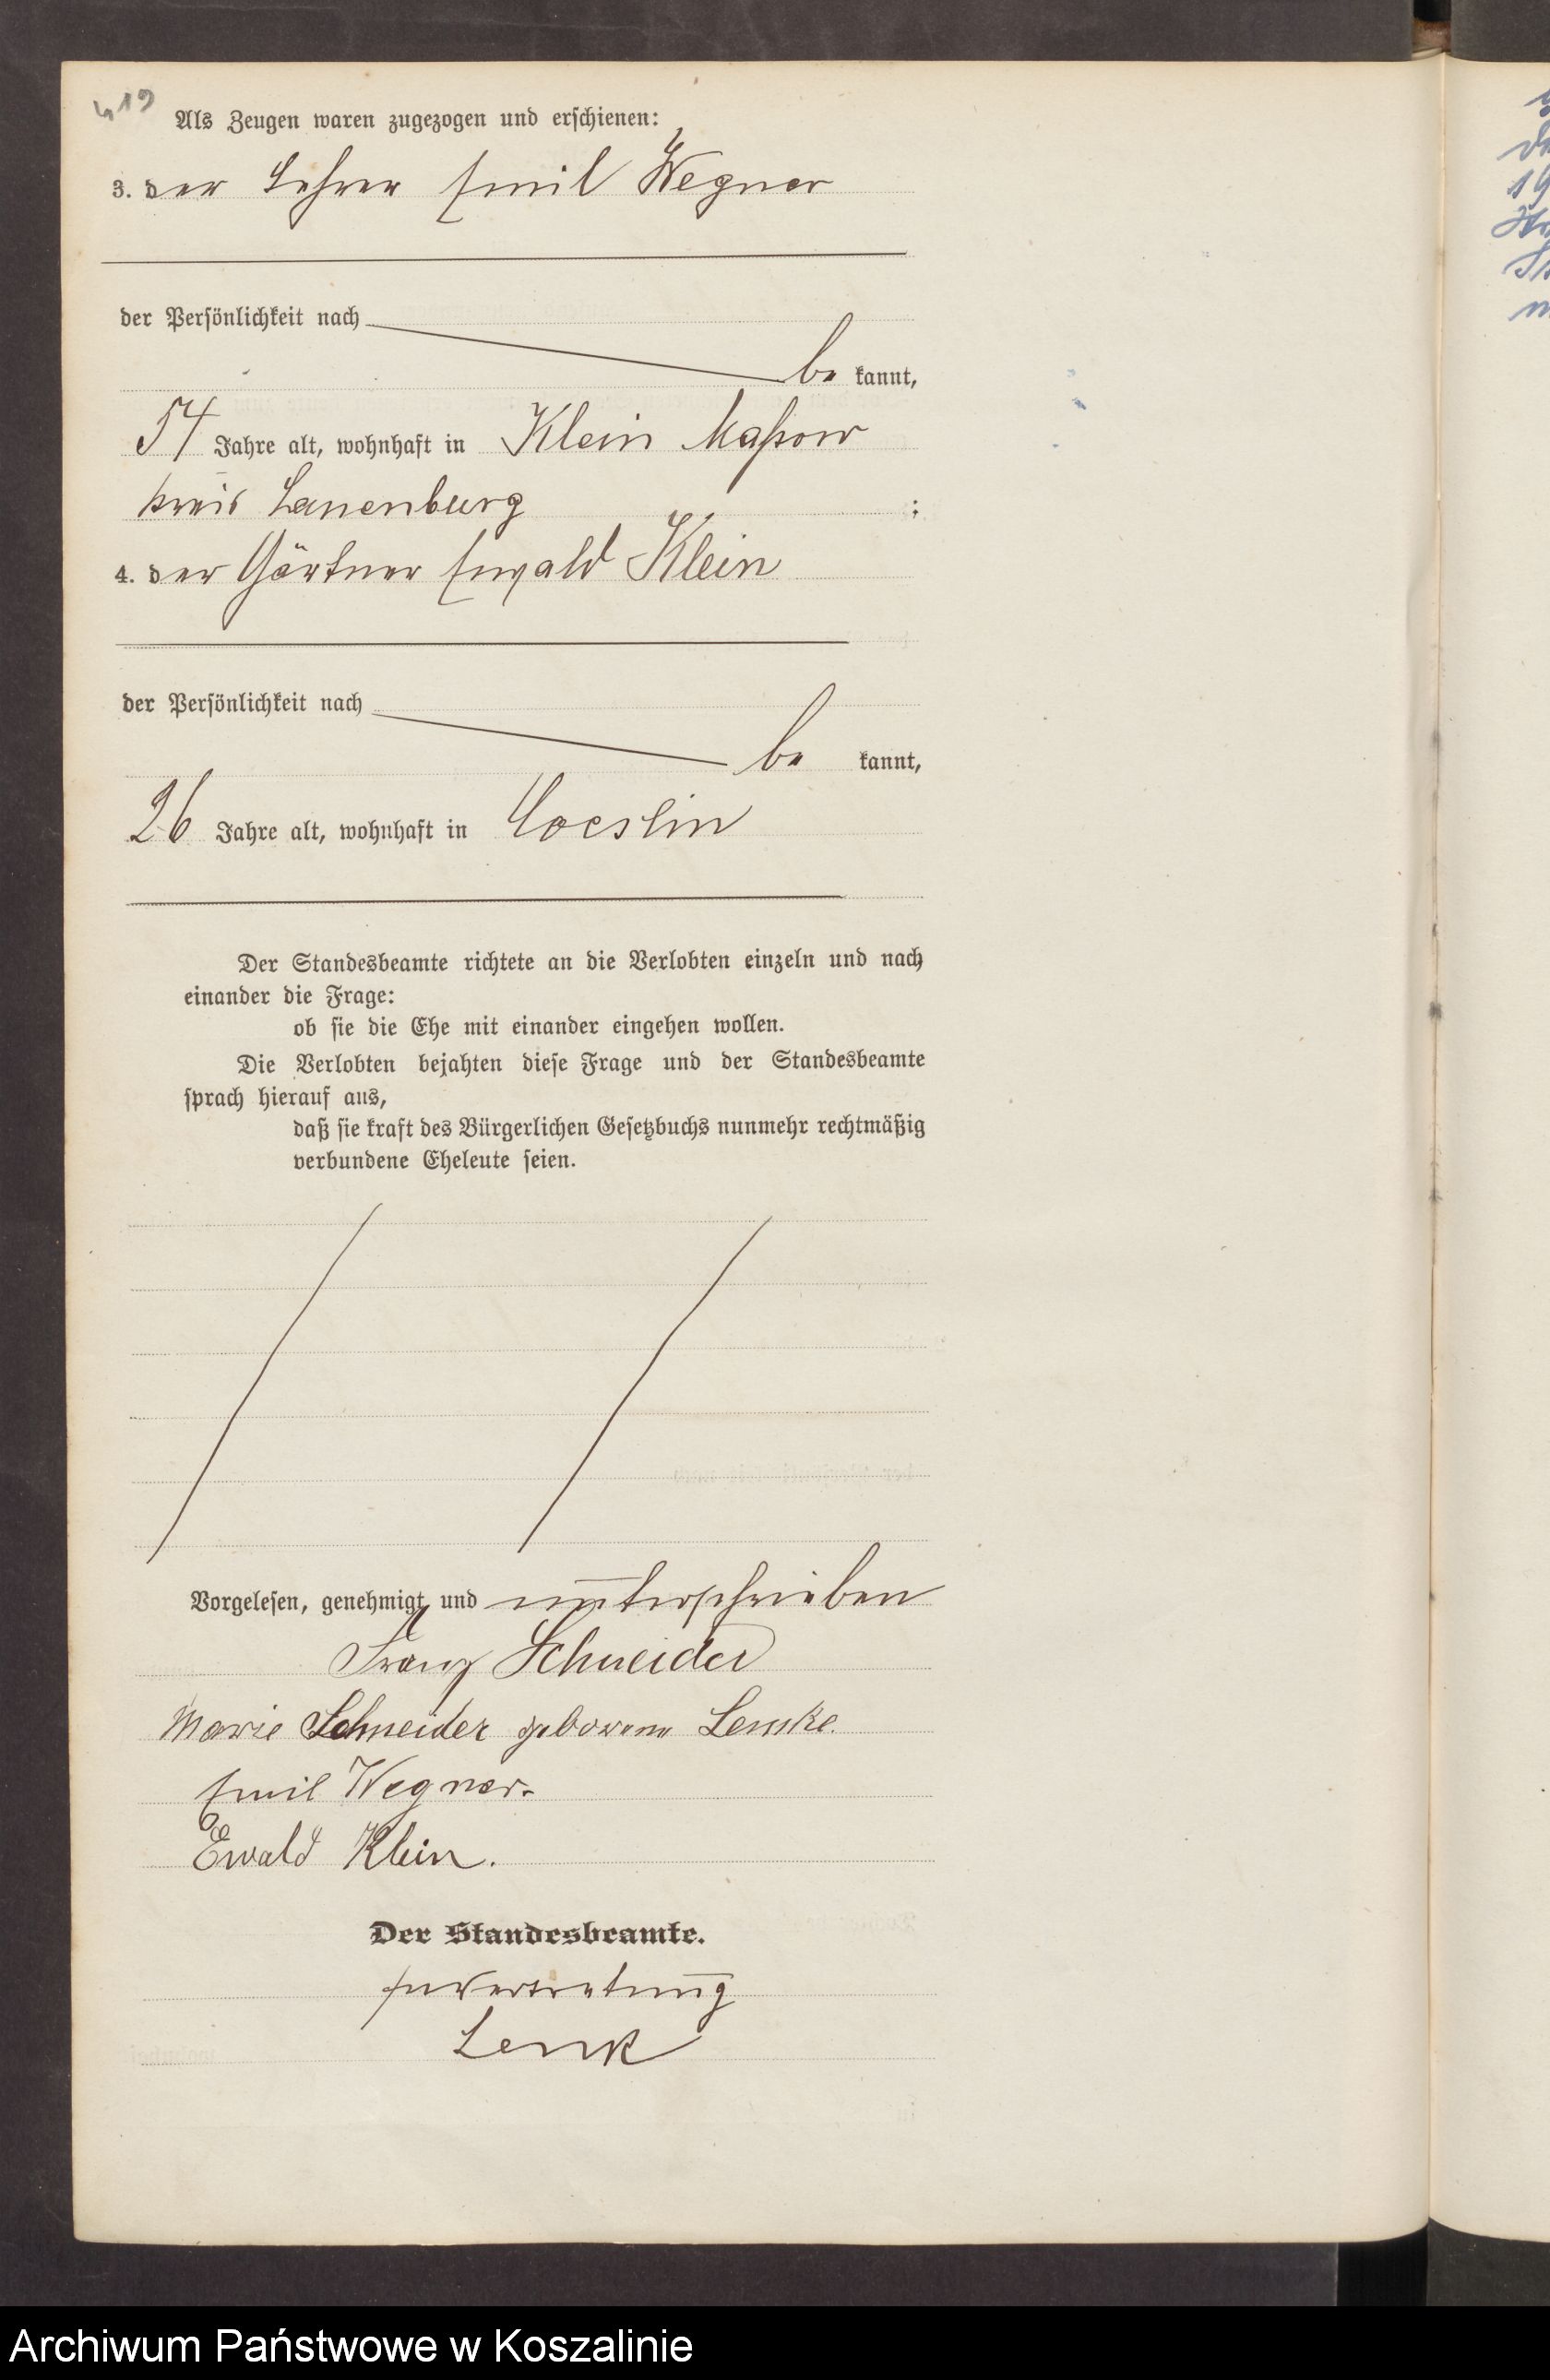 419
Als Zeugen waren zugezogen und erschienen:
3. der Lehrer Emil Wegner
der Persönlichkeit nach
be kannt,
54 Jahre alt, wohnhaft in Klein Maßow
Kreis Lauenburg ;
4. der Gärtner Ewald Klein
der Persönlichkeit nach
be kannt,
26 Jahre alt, wohnhaft in Coeslin
Der Standesbeamte richtete an die Verlobten einzeln und nach
einander die Frage:
ob sie die Ehe mit einander eingehen wollen.
Die Verlobten bejahten diese Frage und der Standesbeamte
sprach hierauf aus,
daß sie kraft des Bürgerlichen Gesetzbuchs nunmehr rechtmäßig
verbundene Eheleute seien.
Vorgelesen, genehmigt und unterschrieben
Franz Schneider
Marie Schneider geborene Lemke.
Emil Wegner.
Ewald Klein.
Der Standesbeamte.
In Vertretung
Lenk
Archiwum Państwowe w Koszalinie